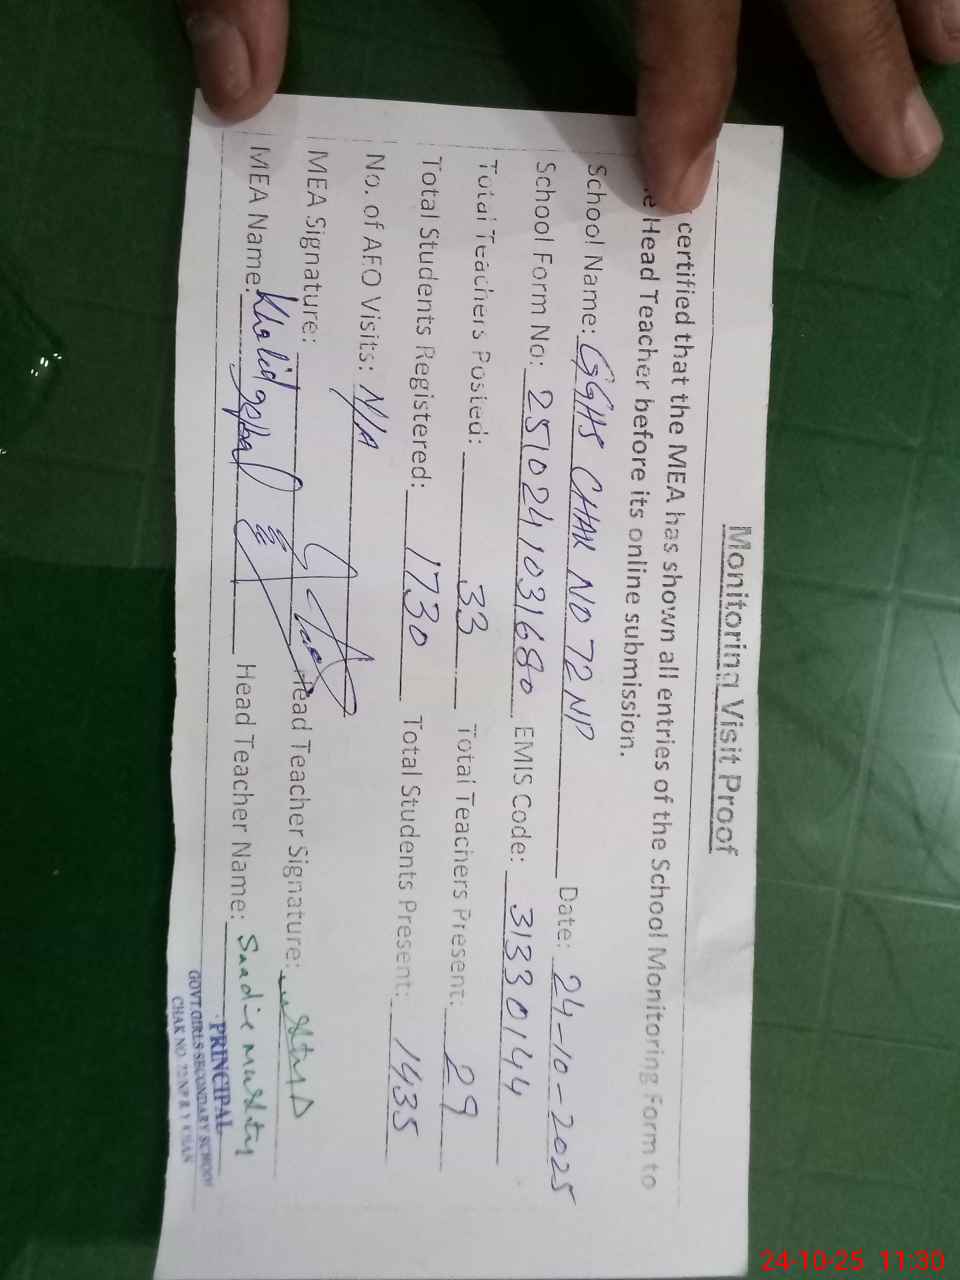 Monitoring Visit Proof
certified that the MEA has shown all entries of the School Monitoring Form to
Head Teacher before its online submission.
School Name: GGHS CHAK NO 72 NP Date: 24-10-2025
School Form No: 2510241031680 EMIS Code: 31330144
Total Teachers Posted: 33 Total Teachers Present: 29
Total Students Registered: 1730 Total Students Present: 1435
No. of AEO Visits: N/A
MEA Signature: Head Teacher Signature:
MEA Name: Khalid Head Teacher Name: Saadia
PRINCIPAL
GOVT. GIRLS SECONDARY SCHOOL
CHAK NO. 72/NP R Y KHAN
24-10-25 11:30